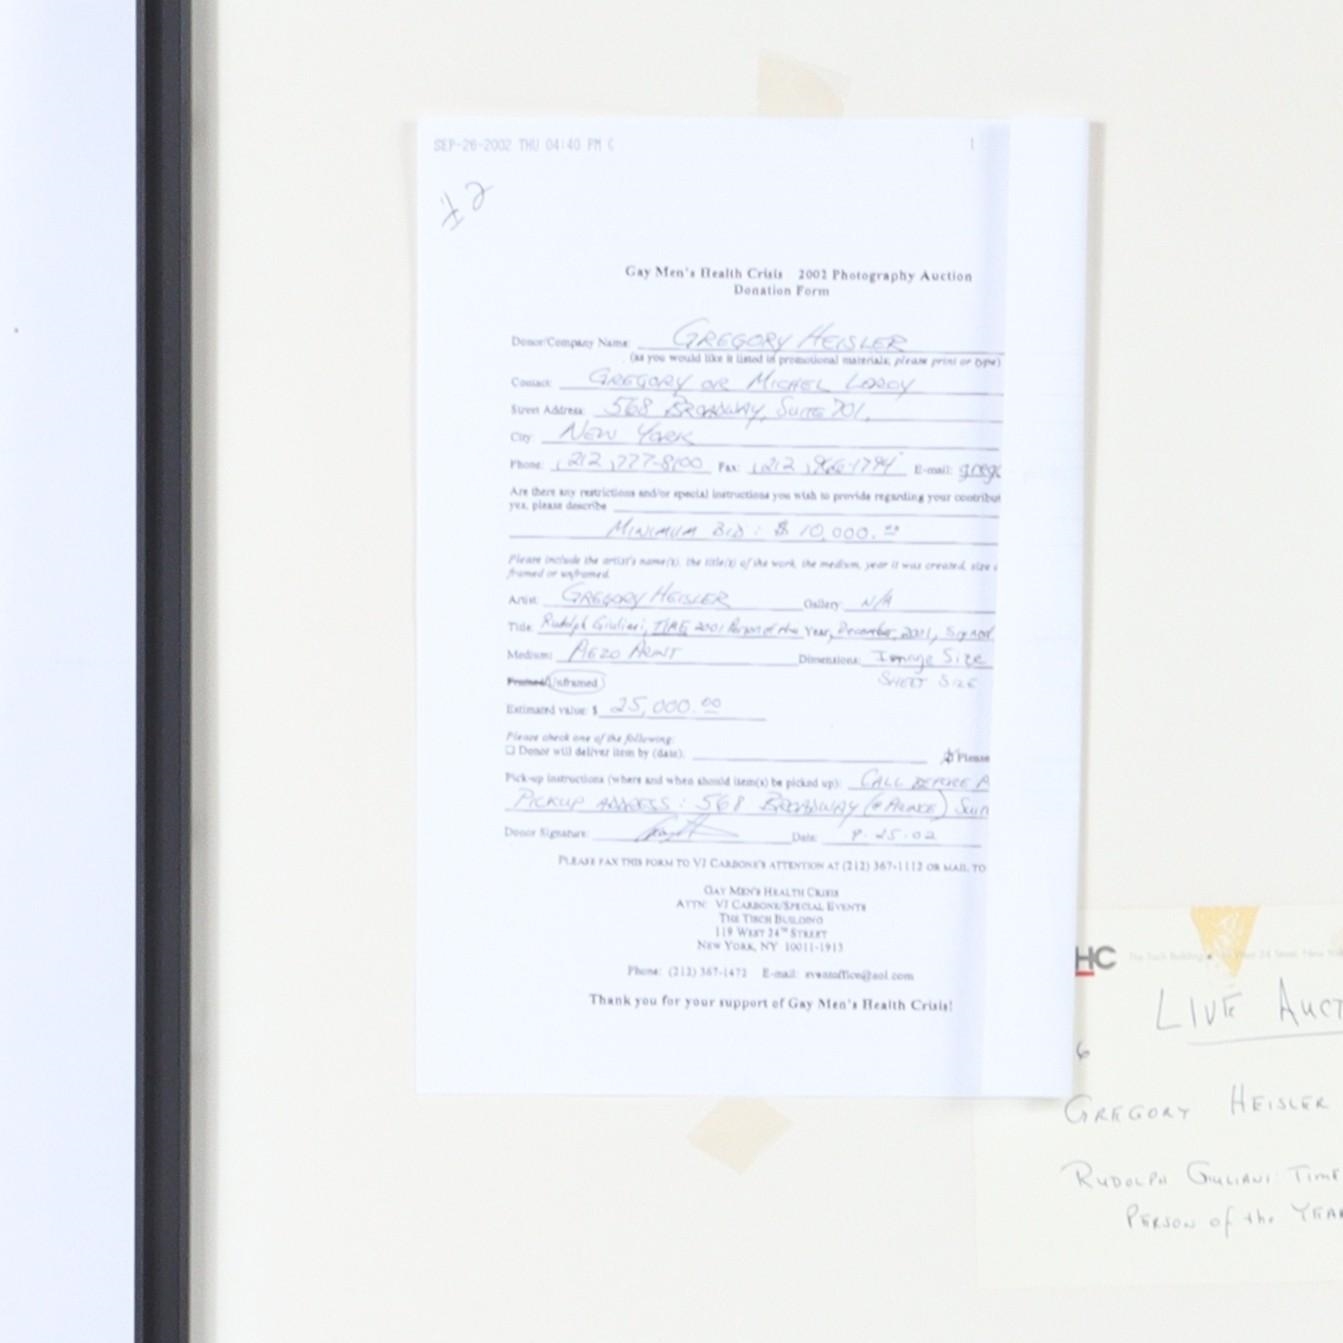 SEP-26-2002 THU 04:40 PM C 1
Gay Men's Health Crisis 2002 Photography Auction
Donation Form
Donor/Company Name: GREGORY HEISLER
(as you would like it listed in promotional materials; please print or type)
Contact: GREGORY OR MICHEL LEROY
Street Address: 568 BROADWAY, SUITE 701,
City: NEW YORK
Phone: (212) 777-8100 Fax: (212) E-mail: greg
Are there any restrictions and/or special instructions you wish to provide regarding your contribut
yes, please describe
MINIMUM BID: $ 10,000.00
Please include the artist's name(s), the title(s) of the work, the medium, year it was created, size
framed or unframed.
Artist: GREGORY HEISLER Gallery: N/A
Title: Rudolph Giuliani, TIME 2001 Person of the Year, December, 2001, Signed
Medium: PIEZO PRINT Dimensions: Image Size
Framed/Unframed SHEET SIZE
Estimated value: $ 25,000.00
Please check one of the following:
❑ Donor will deliver item by (date): Please
Pick-up instructions (where and when should item(s) be picked up): CALL BEFORE
PICKUP ADDRESS: 568 BROADWAY (@ PRINCE) Suit
Donor Signature: Date: 9.25.02
PLEASE FAX THIS FORM TO VJ CARBONE'S ATTENTION AT (212) 367-1112 OR MAIL TO
GAY MEN'S HEALTH CRISIS
ATTN: VJ CARBONE/SPECIAL EVENTS
THE TISCH BUILDING
119 WEST 24TH STREET
NEW YORK, NY 10011-1913
Phone: (212) 367-1472 E-mail: eventoffice@aol.com
Thank you for your support of Gay Men's Health Crisis!
HC The Tisch Building West 24 Street New
LIVE AUCT
6
GREGORY HEISLER
RUDOLPH GIULIANI TIME
PERSON of the YEAR